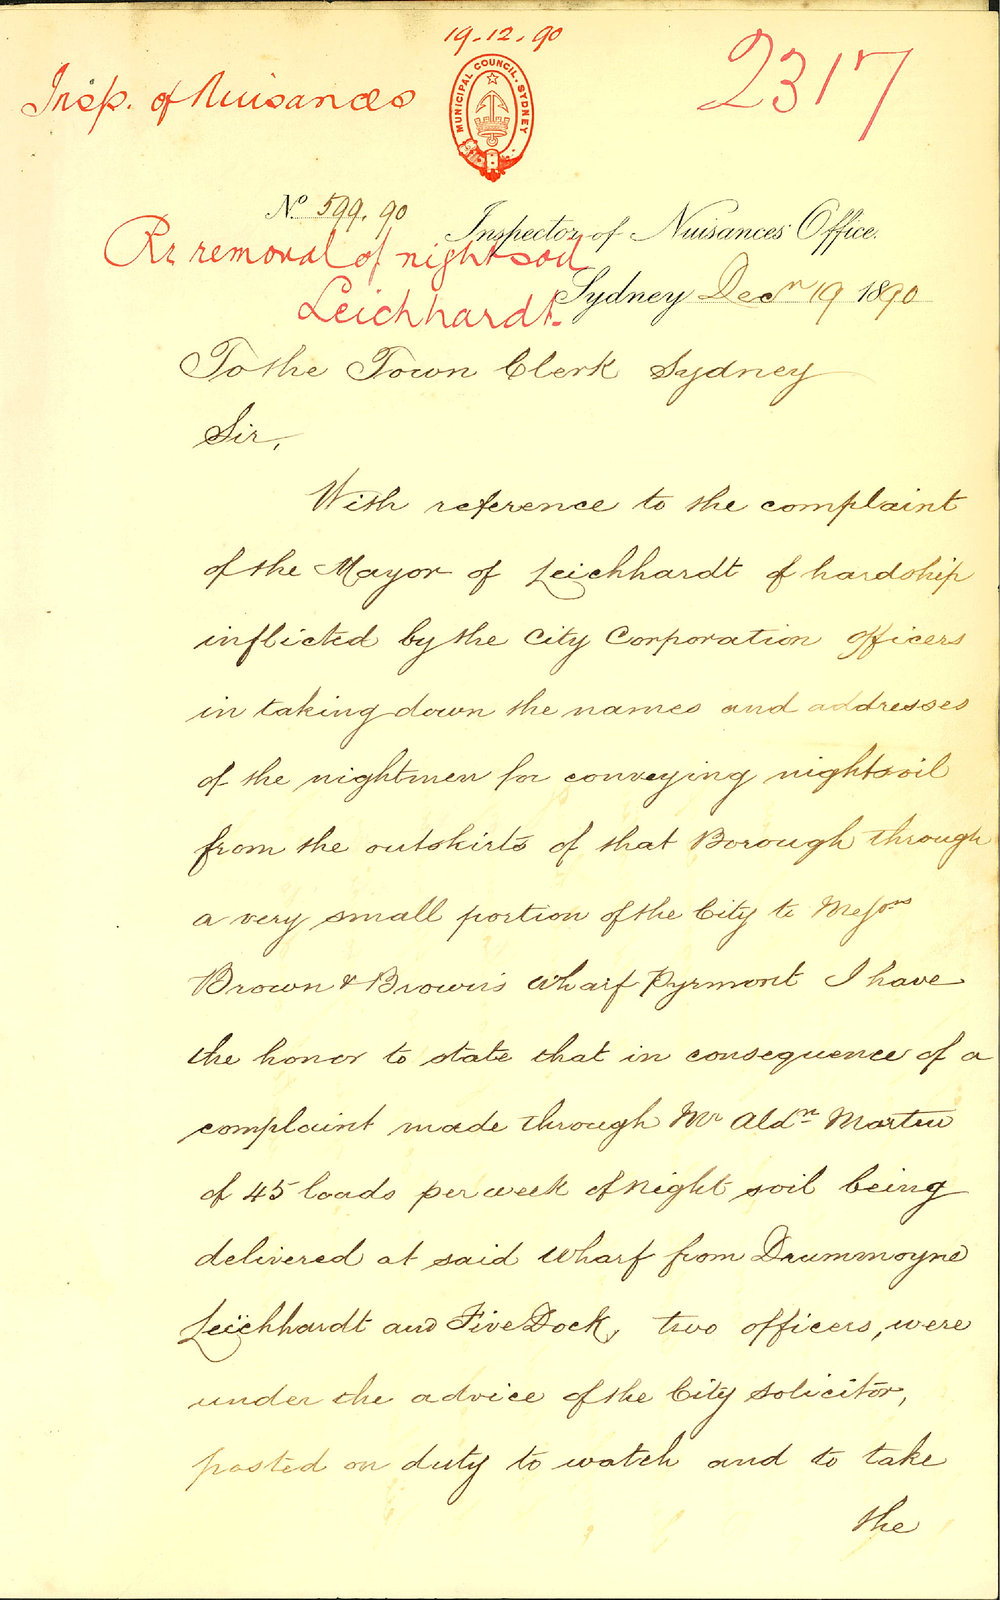 19.12.90
2317
Insp. of Nuisances
MUNICIPAL COUNCIL. SYDNEY
No 599.90
Inspector of Nuisances Office.
Re removal of nightsoil
Leichhardt.
Sydney Decr 19 1890
To the Town Clerk Sydney
Sir,
With reference to the complaint
of the Mayor of Leichhardt of hardship
inflicted by the City Corporation officers
in taking down the names and addresses
of the nightmen for conveying nightsoil
from the outskirts of that Borough through
a very small portion of the City to Messrs
Brown & Brown's Wharf Pyrmont I have
the honor to state that in consequence of a
complaint made through Mr Aldn Martin
of 45 loads per week of night soil being
delivered at said Wharf from Drummoyne
Leichhardt and Five Dock, two officers, were
under the advice of the City Solicitor,
posted on duty to watch and to take
the